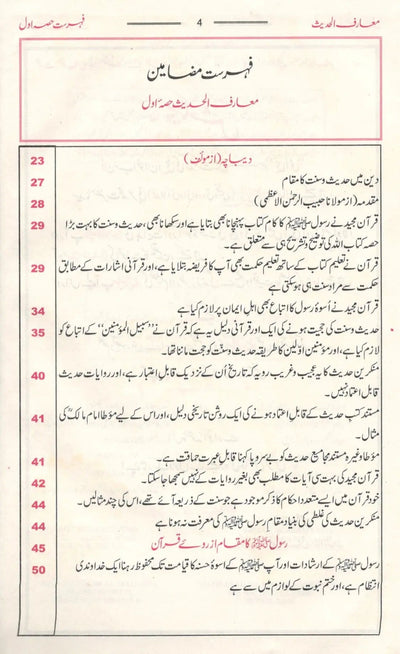 معارف الحدیث
4
فہرست حصہ اول
فہرست مضامین
معارف الحدیث حصۂ اول
دیباچہ (از مؤلف) 23
دین میں حدیث وسنت کا مقام 27
مقدمہ (از مولانا حبیب الرحمٰن الاعظمی) 28
قرآن مجید نے رسول ﷺ کا کام کتاب پہنچانا بھی بتایا ہے اور سکھانا بھی، حدیث وسنت کا بہت بڑا 29
حصہ کتاب اللہ کی توضیح وتشریح ہی سے متعلق ہے۔
قرآن نے تعلیم کتاب کے ساتھ تعلیم حکمت بھی آپ کا فریضہ بتلایا ہے، اور قرآنی اشارات کے مطابق 29
حکمت سے مراد سنت ہی ہوسکتی ہے
قرآن مجید نے اسوۂ رسول کا اتباع بھی اہل ایمان پر لازم کیا ہے 34
حدیث وسنت کی حجیت ہونے کی ایک اور قرآنی دلیل یہ ہے کہ قرآن نے ”سبیل المؤمنین“ کے اتباع کو 35
لازم کیا ہے، اور مؤمنین اولین کا طریقہ حدیث وسنت کو حجت ماننا تھا۔
منکرین حدیث کا یہ عجیب وغریب رویہ کہ تاریخ اُن کے نزدیک قابلِ اعتبار ہے، اور روایات حدیث 40
قابل اعتماد نہیں۔
مستند کتب حدیث کے قابل اعتماد ہونے کی ایک روشن تاریخی دلیل، اور اس کے لیے مؤطا امام مالکؒ کی 41
مثال۔
مؤطا وغیرہ مستند مجامیع حدیث کو بے سروپا کہنا قابلِ عبرت حماقت ہے۔ 41
قرآن مجید کی بہت سی آیات کا مطلب بھی بغیر روایات کے نہیں سمجھا جاسکتا۔ 42
خود قرآن میں ایسے متعدد احکام کا ذکر موجود ہے جو سنت کے ذریعہ آئے تھے، اس کی چند مثالیں۔ 44
منکرین حدیث کی غلطی کی بنیاد مقامِ رسول ﷺ کی معرفت نہ ہونا ہے 44
رسول ﷺ کا مقام از روئے قرآن 45
رسول ﷺ کے ارشادات اور آپ ﷺ کے اسوۂ حسنہ کا قیامت تک محفوظ رہنا ایک خداوندی 50
انتظام ہے، اور ختم نبوت کے لوازم میں سے ہے